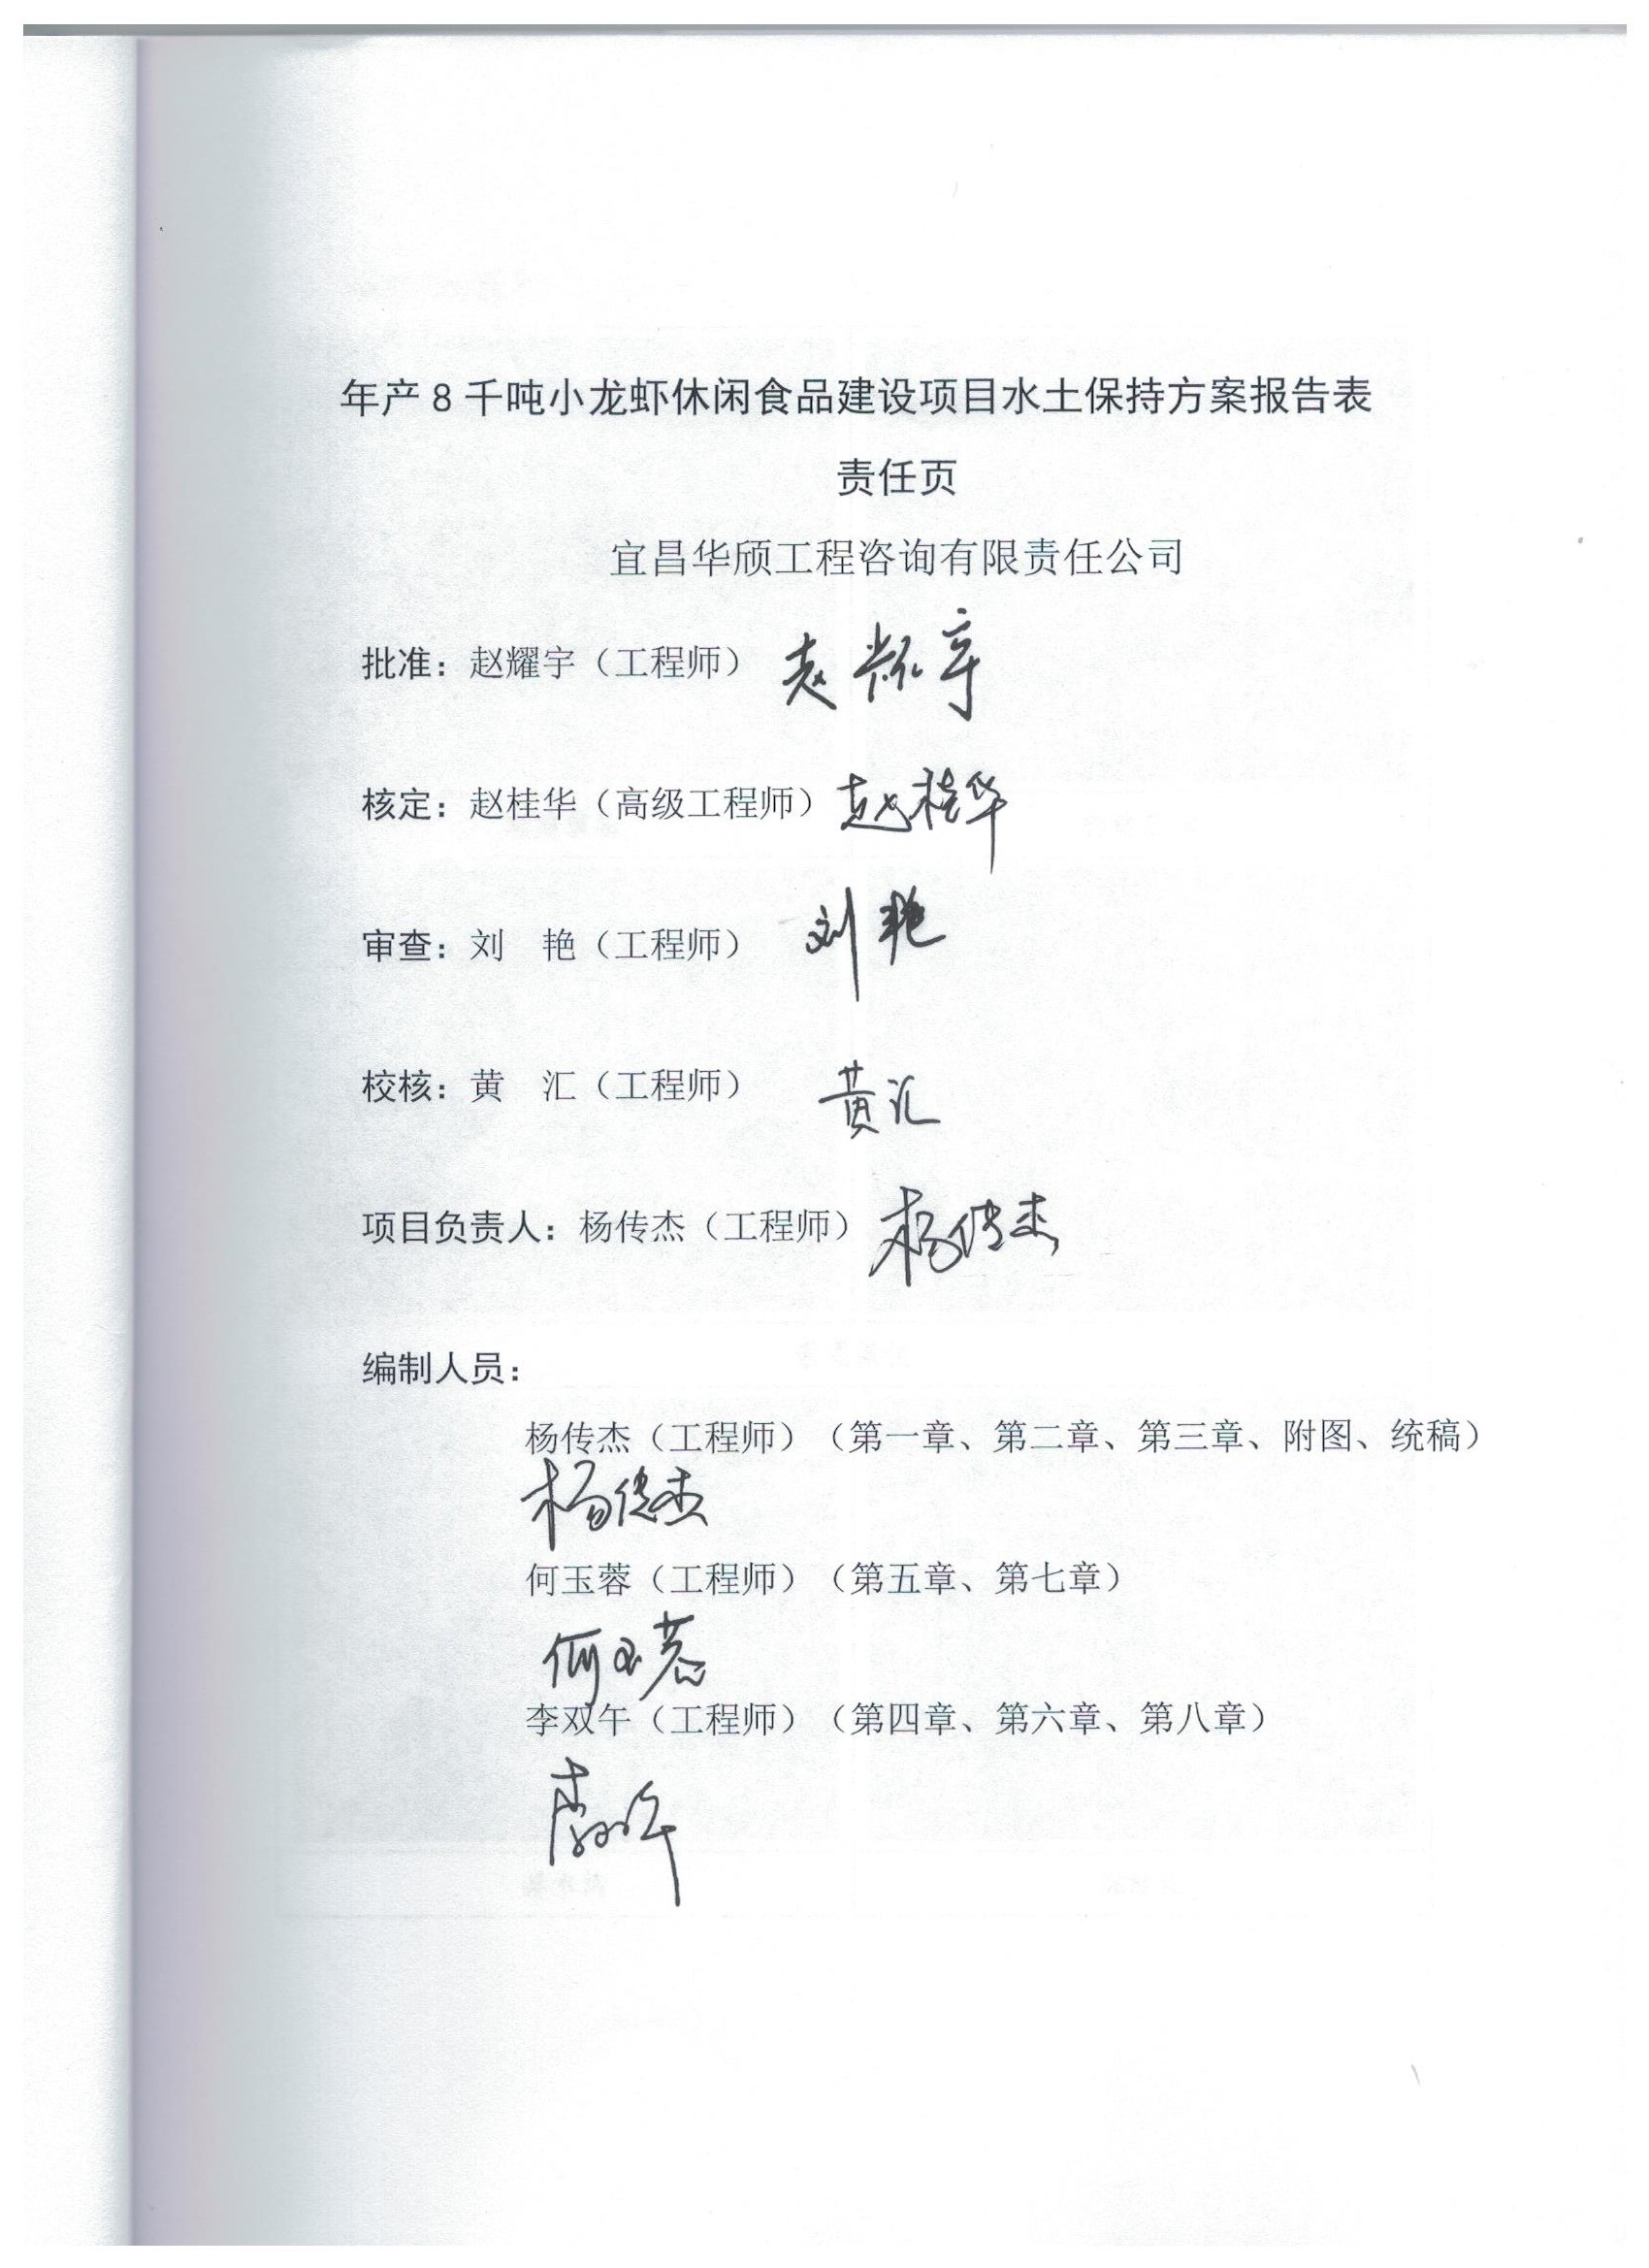 年产 8 千吨小龙虾休闲食品建设项目水土保持方案报告表
责任页
宜昌华颀工程咨询有限责任公司
批准：赵耀宇（工程师） 赵耀宇
核定：赵桂华（高级工程师） 赵桂华
审查：刘　艳（工程师） 刘艳
校核：黄　汇（工程师） 黄汇
项目负责人：杨传杰（工程师） 杨传杰
编制人员：
杨传杰（工程师）（第一章、第二章、第三章、附图、统稿）
杨传杰
何玉蓉（工程师）（第五章、第七章）
何玉蓉
李双午（工程师）（第四章、第六章、第八章）
李双午